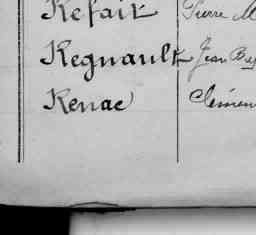 Refait Pierre M
Regnault Jean Ba
Renae Clémen